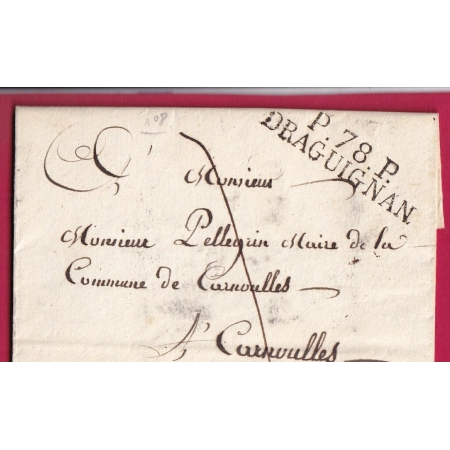 108
P. 78. P.
DRAGUIGNAN
A Monsieur
Monsieur Pellegrin Maire de la
Commune de Carnoulles
A Carnoulles